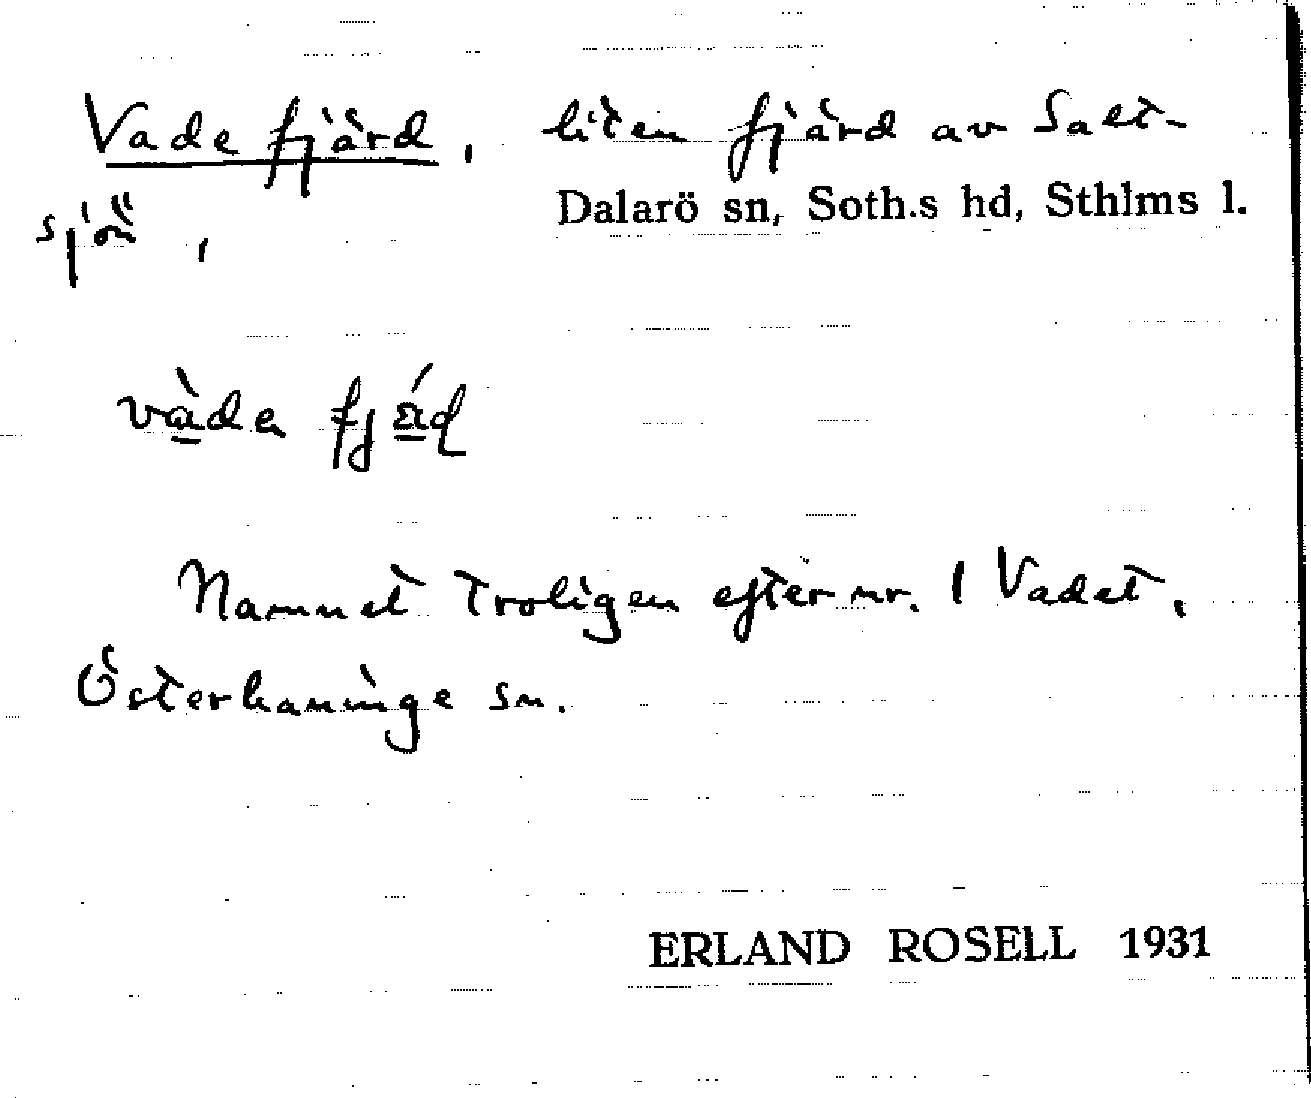 Vade fjärd, liten fjärd av Salt-
sjön,
Dalarö sn, Soth.s hd, Sthlms l.
Namnet troligen efter nr. 1 Vadet,
Österhaninge sn.
ERLAND ROSELL 1931